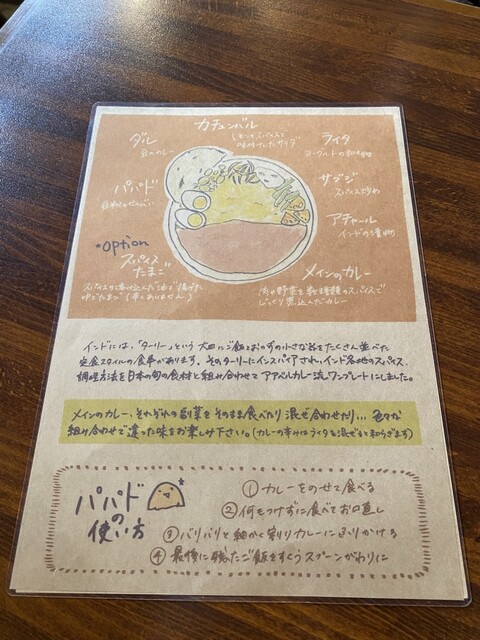 カチュンバル
レモンとスパイスで
味付けしたサラダ
ダル
豆のカレー
ライタ
ヨーグルトの和え物
パパド
豆粉のせんべい
サブジ
スパイス炒め
アチャール
インドの漬物
*option
スパイス
たまご
ゆでたまご(辛くありません)
メインのカレー
肉や野菜を数種類のスパイスで
じっくり煮込んだカレー
インドには、「ターリー」という大皿にご飯とおかずの小さな器をたくさん並べた
定食スタイルの食事があります。そのターリーにインスパイアされ、インド各地のスパイス、
調理方法を日本の旬の食材と組み合わせてアアベルカレー流ワンプレートにしました。
メインのカレー、それぞれの副菜をそのまま食べたり混ぜ合わせたり…色々な
組み合わせで違った味をお楽しみ下さい。(カレーの辛みはライタを混ぜると和らぎます)
パパド
の
使い方
① カレーをのせて食べる
② 何もつけずに食べてお口直し
③ バリバリと細かく割りカレーにふりかける
④ 最後に残ったご飯をすくうスプーンがわりに